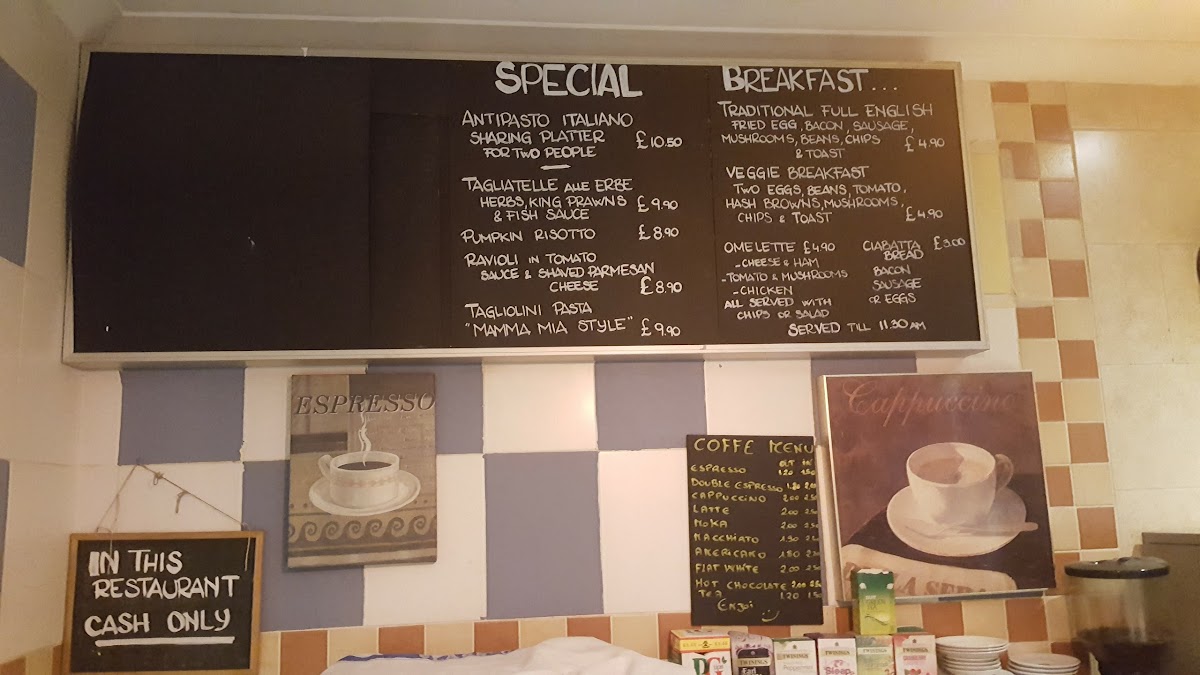 SPECIAL
ANTIPASTO ITALIANO
SHARING PLATTER
FOR TWO PEOPLE £10.50
TAGLIATELLE ALLE ERBE
HERBS, KING PRAWNS
& FISH SAUCE £9.90
PUMPKIN RISOTTO £8.90
RAVIOLI IN TOMATO
SAUCE & SHAVED PARMESAN
CHEESE £8.90
TAGLIOLINI PASTA
"MAMMA MIA STYLE" £9.90
BREAKFAST...
TRADITIONAL FULL ENGLISH
FRIED EGG, BACON, SAUSAGE,
MUSHROOMS, BEANS, CHIPS
& TOAST £4.90
VEGGIE BREAKFAST
TWO EGGS, BEANS, TOMATO,
HASH BROWNS, MUSHROOMS,
CHIPS & TOAST £4.90
OMELETTE £4.90
-CHEESE & HAM
-TOMATO & MUSHROOMS
-CHICKEN
ALL SERVED WITH
CHIPS OR SALAD
CIABATTA £3.00
BREAD
BACON
SAUSAGE
OR EGGS
SERVED TILL 11.30 AM
ESPRESSO
COFFE MENU
OUT IN
ESPRESSO 1.20 1.50
DOUBLE ESPRESSO
CAPPUCCINO 2.00 2.50
LATTE 2.00 2.50
MOKA 2.00 2.50
MACCHIATO
AMERICANO
FLAT WHITE 2.00 2.50
HOT CHOCOLATE 2.00 2.50
TEA 1.20 1.50
ENJOI
Cappuccino
IN THIS
RESTAURANT
CASH ONLY
PG
TWININGS
Earl
TWININGS
Peppermint
TWININGS
Sleep
TWININGS
TWININGS